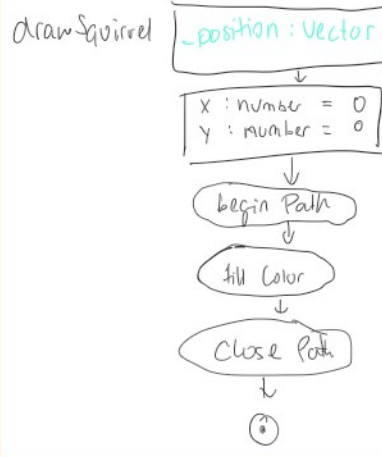 drawSquirrel
_position : Vector
X : number = 0
Y : number = 0
begin Path
fill Color
Close Path